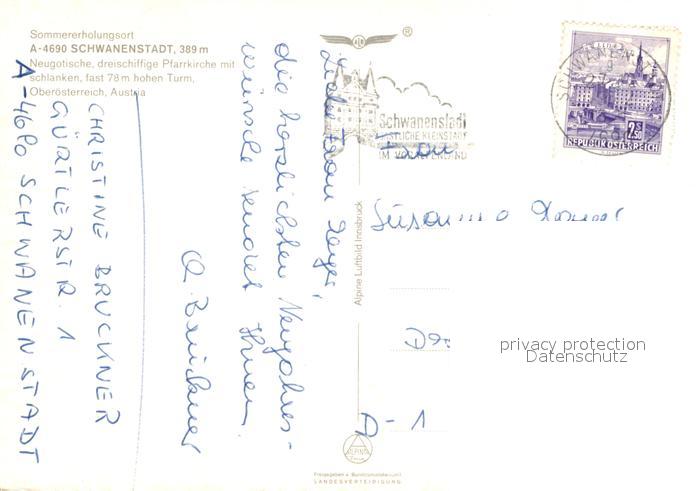 Sommererholungsort
A-4690 SCHWANENSTADT, 389 m
Neugotische, dreischiffige Pfarrkirche mit
schlanken, fast 78 m hohen Turm,
Oberösterreich, Austria
CHRISTINE BRUCKNER
GÜRTLERSTR. 1
A-4680 SCHWANENSTADT
die herzlichsten Neujahrs-
wünsche sendet Ihnen
Ch. Bruckner
®
Alpine Luftbild Innsbruck
Schwanenstadt
KLEINSTADT
IM
SCHWANENST
2.50
REPUBLIK ÖSTERREICH
Frau
Susanna
A-1
privacy protection
Datenschutz
ALPINE
Freigegeben v. Bundesministerium f.
LANDESVERTEIDIGUNG